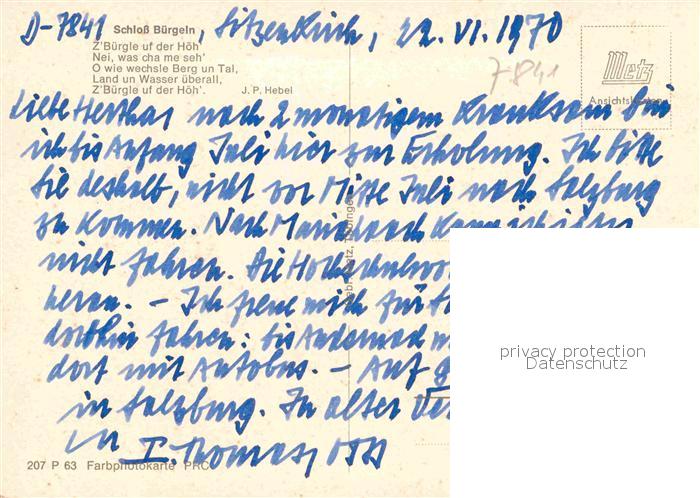 D-7841 Schloß Bürgeln, Sitzenkirch, 22. VI. 1970
Z'Bürgle uf der Höh'
Nei, was cha me seh'
O wie wechsle Berg un Tal,
Land un Wasser überall,
Z'Bürgle uf der Höh'. J. P. Hebel
7841
Metz
Ansichtskarten
Liebe Hertha, nach 2 monatigem Kranksein bin
ich bis Anfang Juli hier zur Erholung. Ich bitte
Sie deshalb, nicht vor Mitte Juli nach Salzburg
zu kommen. Nach Maria Laach kann ich
nicht fahren. Die
heran. – Ich freue mich für
dorthin fahren: bis Andernach
dort mit Autobus. – Auf
in Salzburg. In alter
P. Thomas, OSB
Gebr. Metz, Tübingen
privacy protection
Datenschutz
207 P 63 Farbphotokarte PRC